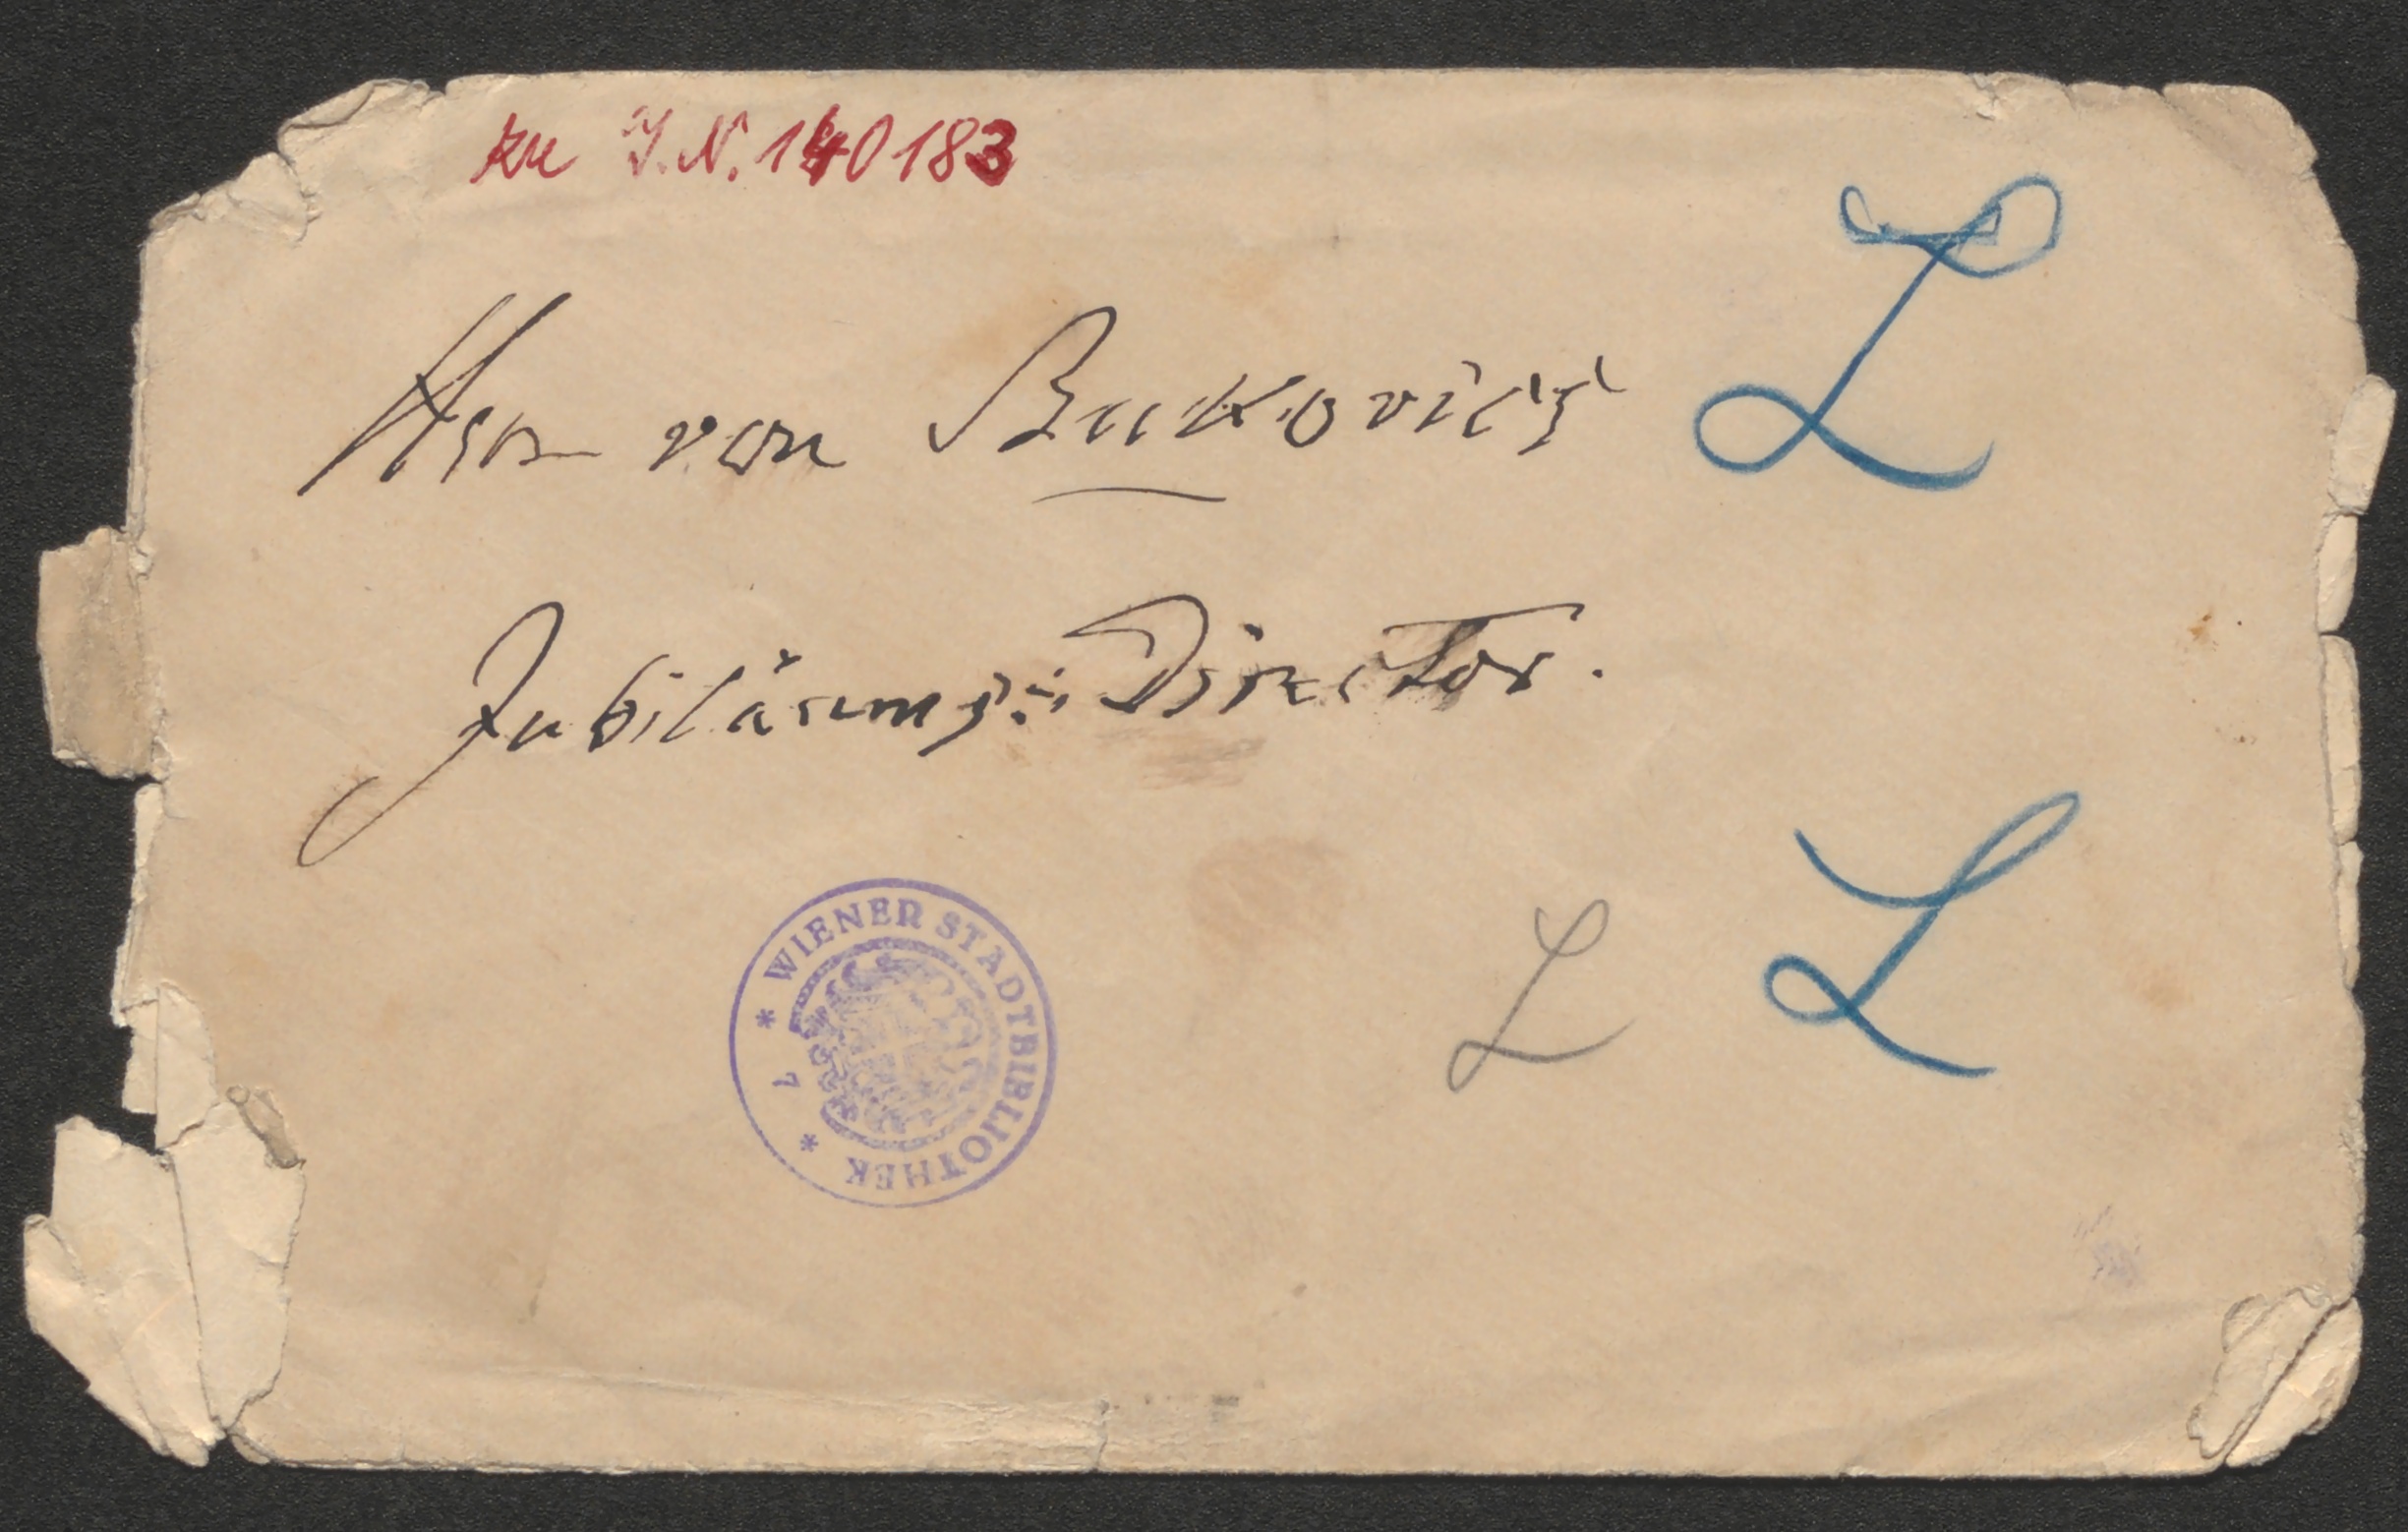 zu I.N. 140183
Herrn von Bukovics
L
Jubiläums-Director.
* WIENER STADTBIBLIOTHEK * 7
L L